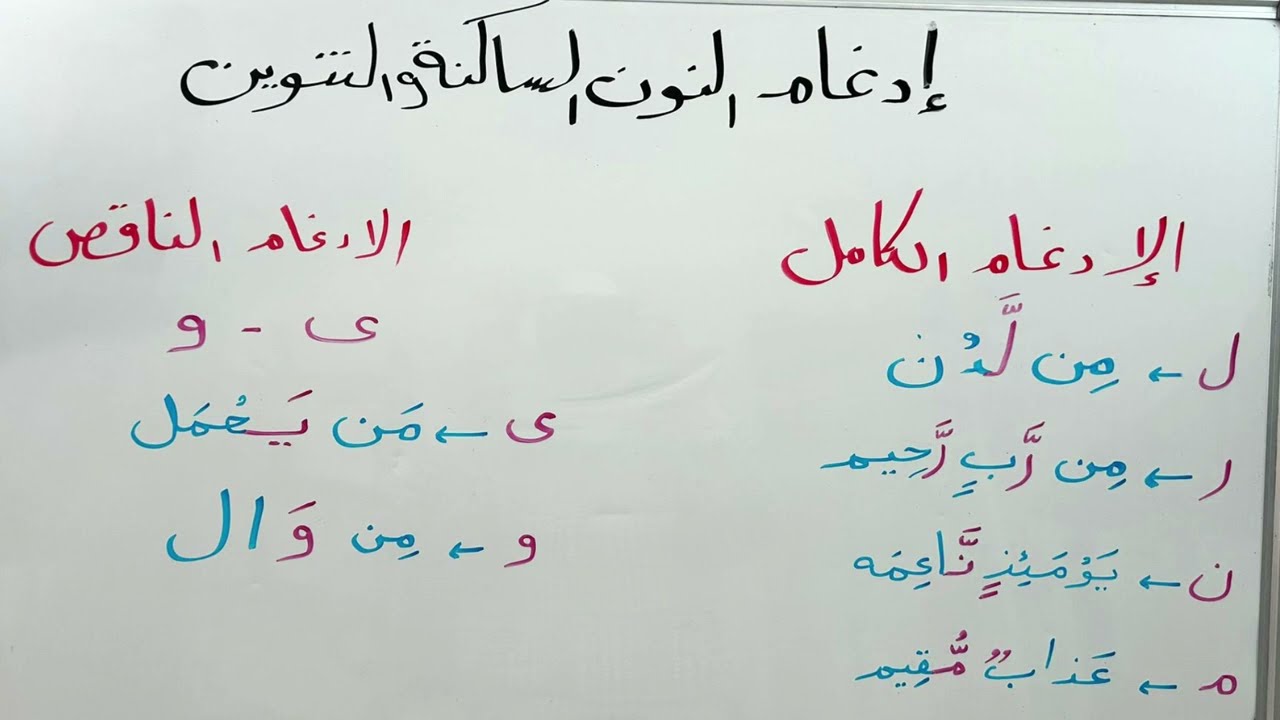 إدغام النون الساكنة والتنوين
الإدغام الكامل
ل ← مِن لَّدُن
ر ← مِن رَّبٍ رَّحِيم
ن ← يَوْمَئِذٍ نَّاعِمَه
م ← عَذابٌ مُّقِيم
الادغام الناقص
ى - و
ى ← مَن يَعْمَل
و ← مِن وَال